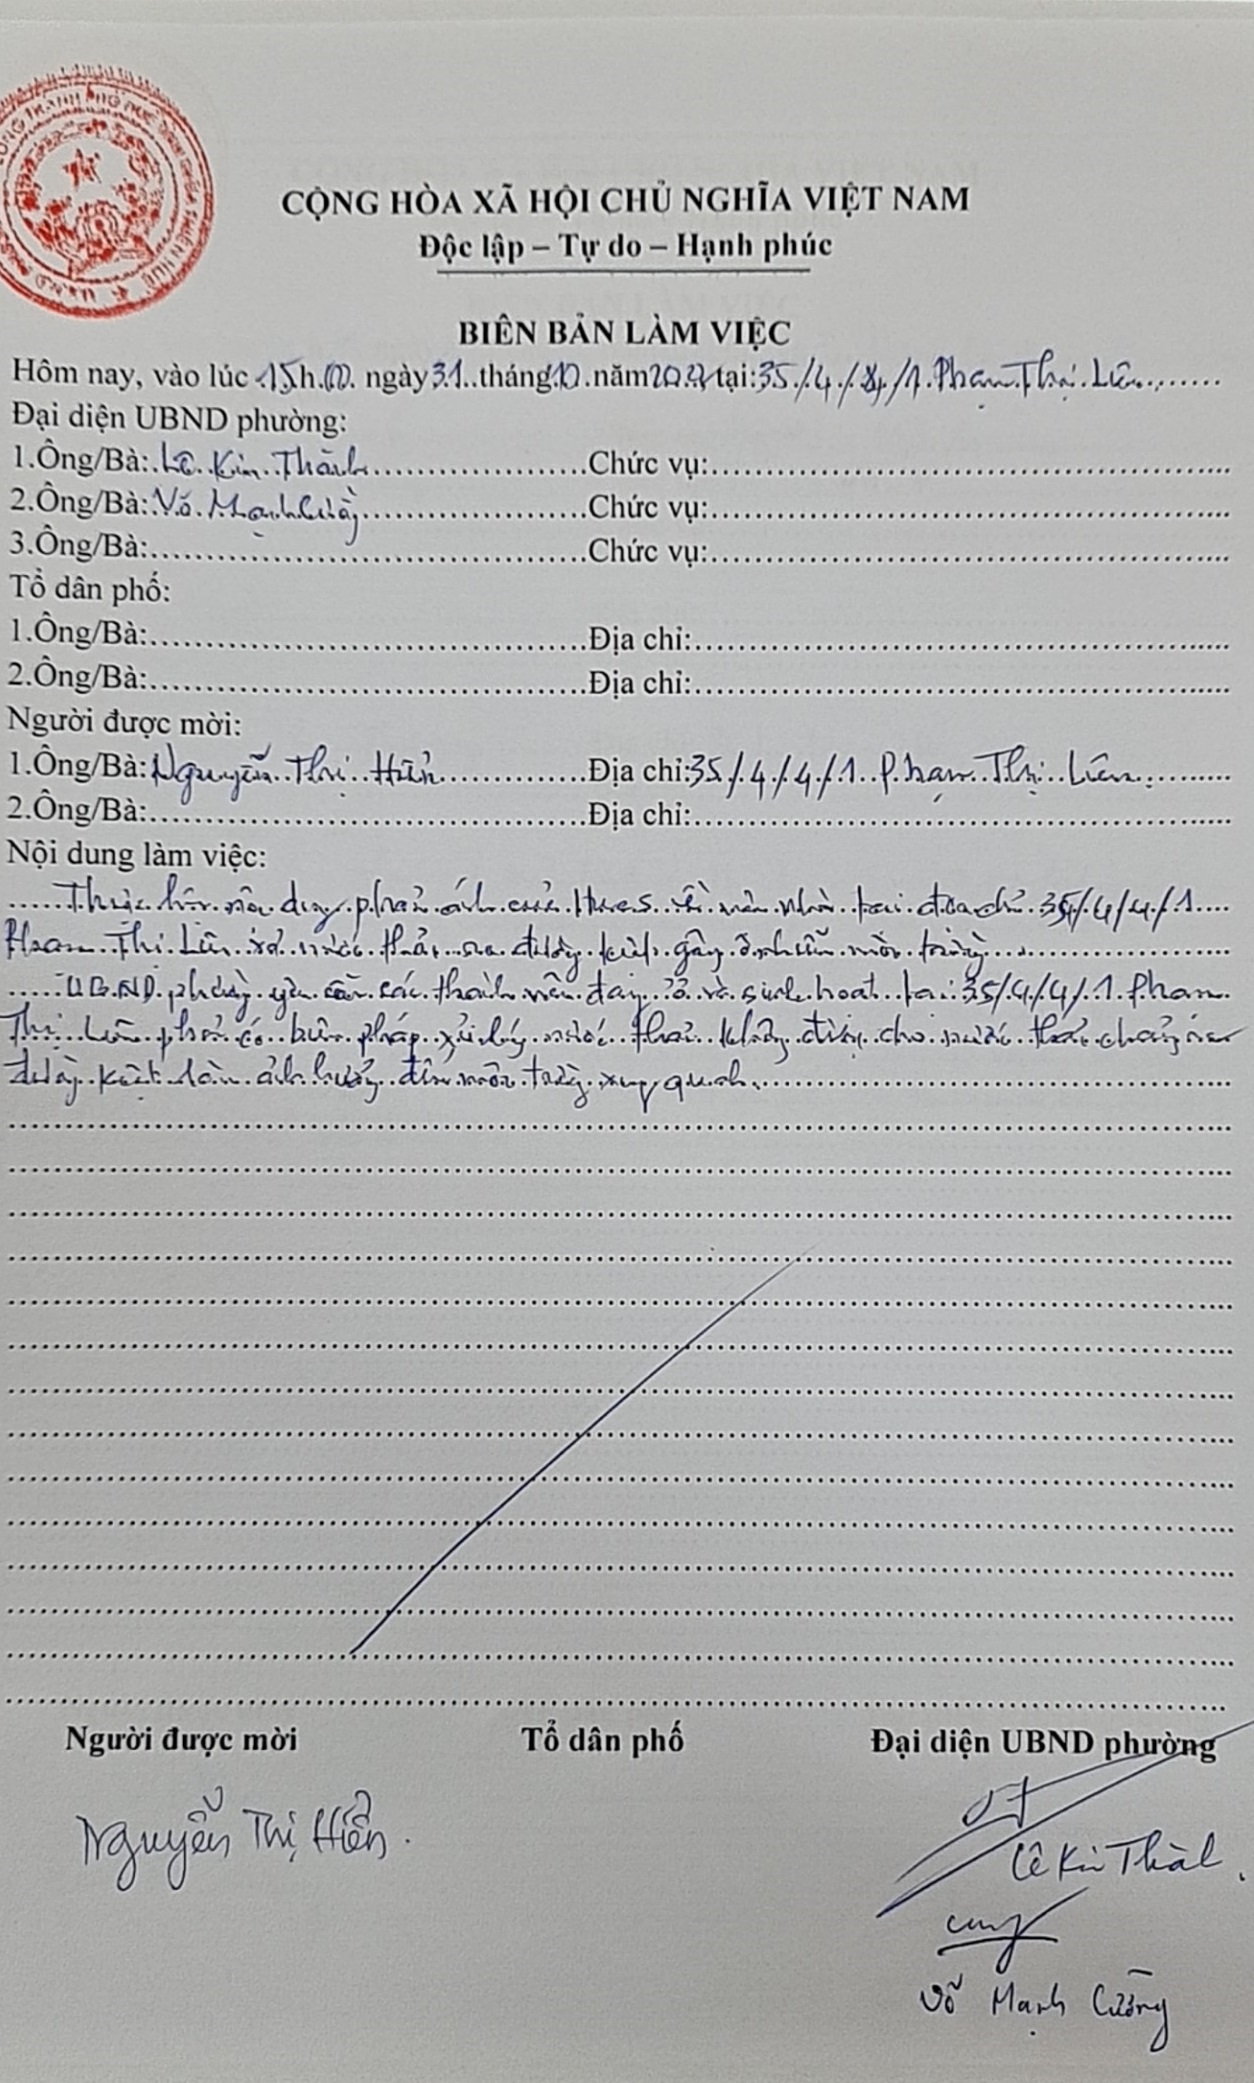 CỘNG HÒA XÃ HỘI CHỦ NGHĨA VIỆT NAM
Độc lập – Tự do – Hạnh phúc
BIÊN BẢN LÀM VIỆC
Hôm nay, vào lúc 15h.00. ngày 31. tháng 10. năm tại: 35/4/4/1 Phạm Thị Liên
Đại diện UBND phường:
1.Ông/Bà: Lê Kim Thành Chức vụ:
2.Ông/Bà: Võ Mạnh Cường Chức vụ:
3.Ông/Bà: Chức vụ:
Tổ dân phố:
1.Ông/Bà: Địa chỉ:
2.Ông/Bà: Địa chỉ:
Người được mời:
1.Ông/Bà: Nguyễn Thị Hiền Địa chỉ: 35/4/4/1 Phạm Thị Liên
2.Ông/Bà: Địa chỉ:
Nội dung làm việc:
Thực hiện nội dung phản ánh của Hues về việc nhà tại địa chỉ 35/4/4/1
Phạm Thị Liên xả nước thải ra đường kiệt gây ô nhiễm môi trường
UBND phường yêu cầu các thành viên đang ở và sinh hoạt tại 35/4/4/1 Phạm
Thị Liên phải có biện pháp xử lý nước thải không được cho nước thải chảy
đường kiệt làm ảnh hưởng đến môi trường xung quanh.
Người được mời Tổ dân phố Đại diện UBND phường
Nguyễn Thị Hiền
Lê Kim Thành
Võ Mạnh Cường